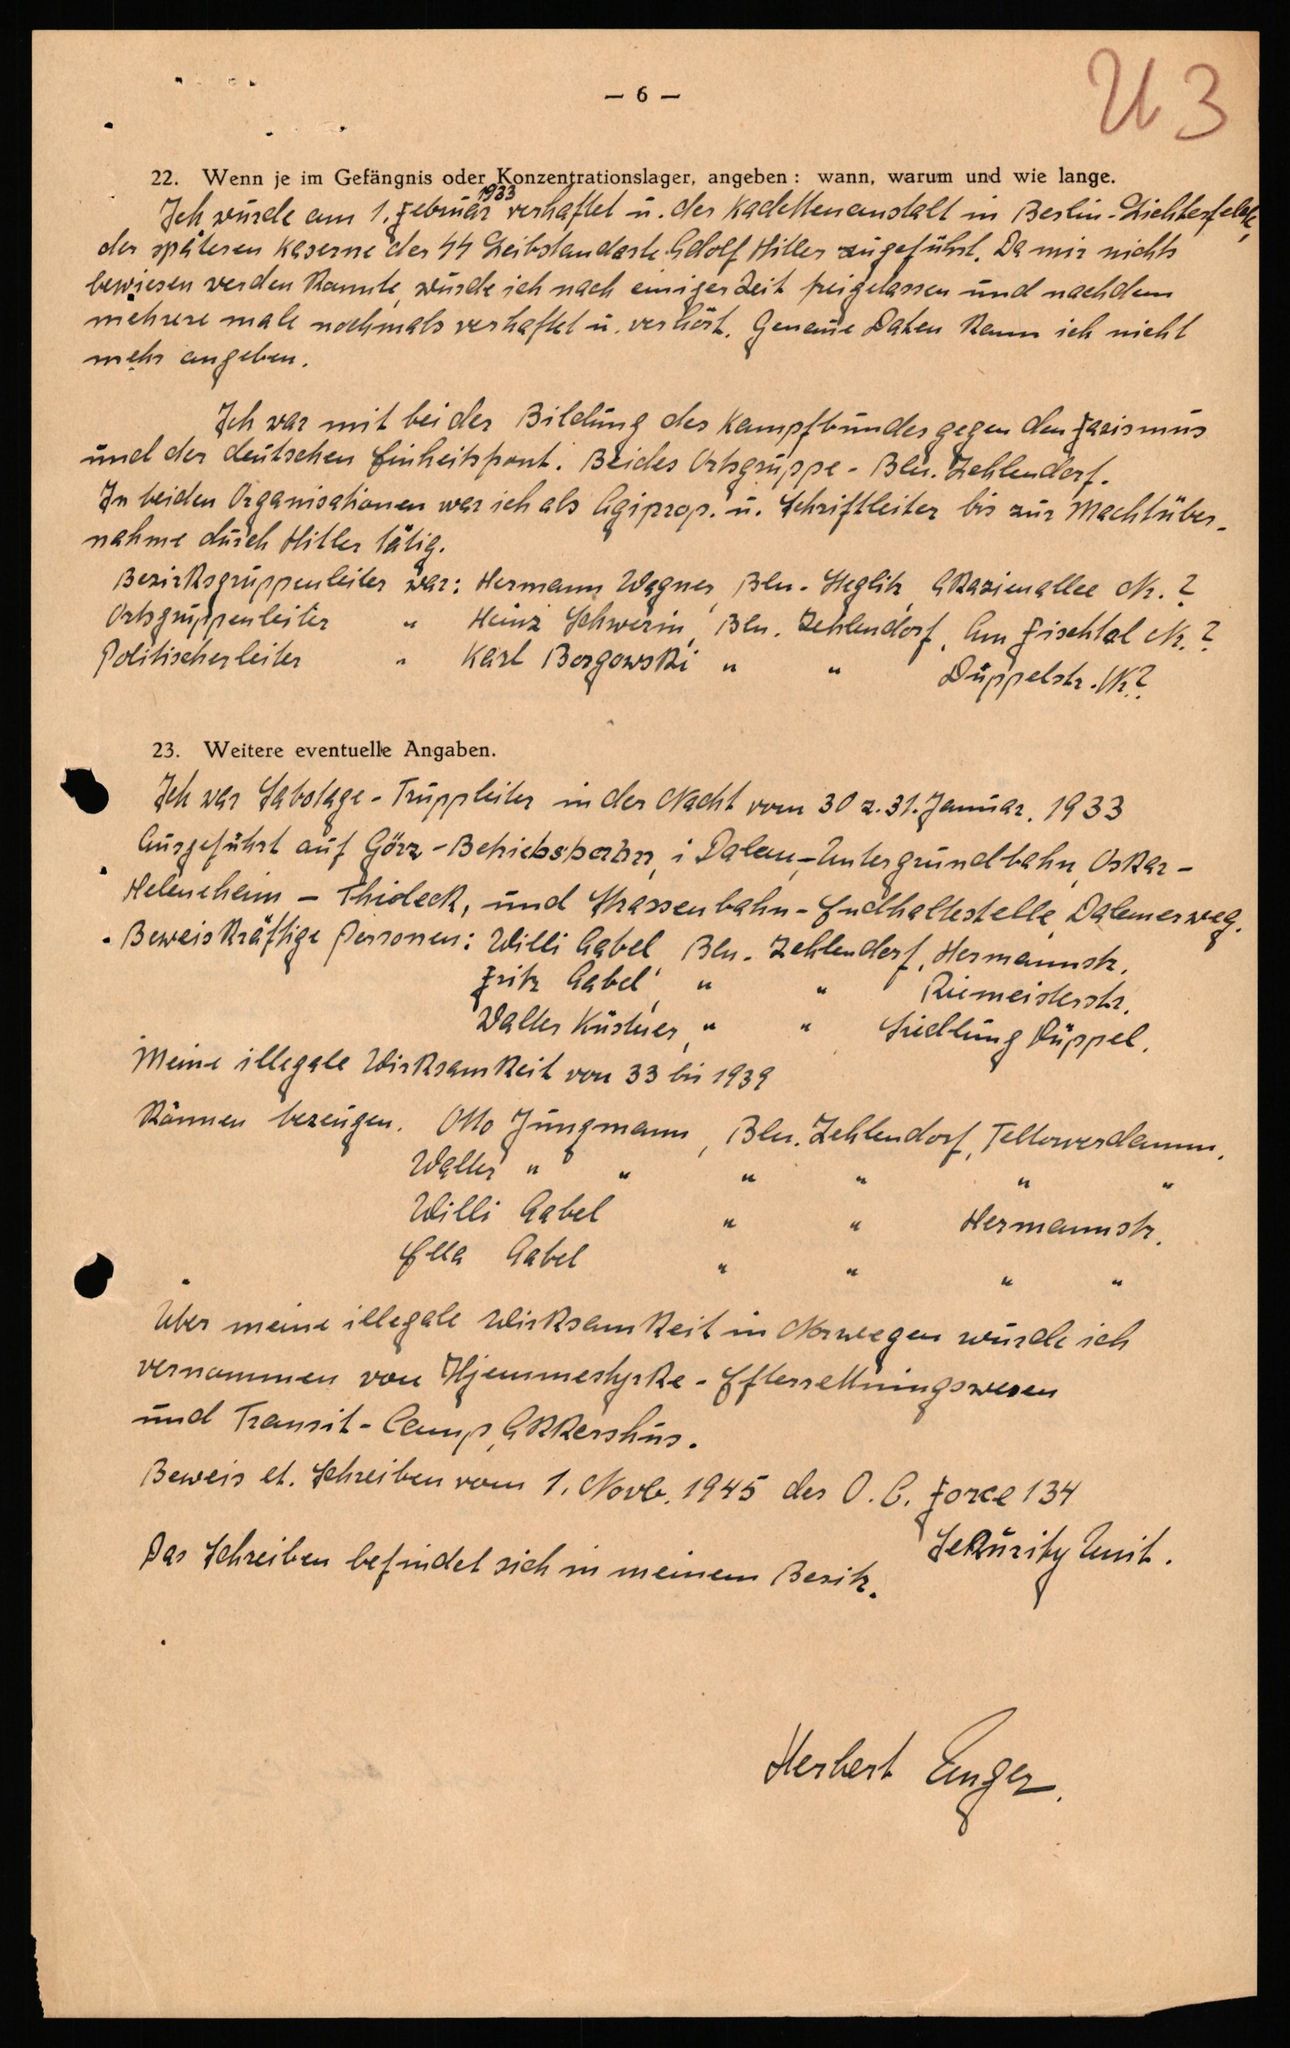 — 6 —
U 3
22. Wenn je im Gefängnis oder Konzentrationslager, angeben: wann, warum und wie lange.
Ich wurde am 1. Februar 1933 verhaftet u. der Kadettenanstalt in Berlin-Lichterfelde,
der späteren Kaserne der SS Leibstandarte Adolf Hitler zugeführt. Da mir nichts
bewiesen werden konnte, wurde ich nach einiger Zeit freigelassen und nachdem
mehrere male nochmals verhaftet u. verhört. Genaue Daten kann ich nicht
mehr angeben.
Ich war mit bei der Bildung des Kampfbundes gegen den Facismus
und der deutschen Einheitsfront. Beides Ortsgruppe - Bln. Zehlendorf.
In beiden Organisationen war ich als Agiprop. u. Schriftleiter bis zur Machtüber-
nahme durch Hitler tätig.
Bezirksgruppenleiter war: Hermann Wagner, Bln. - Steglitz, Akazienallee Nr. ?
Ortsgruppenleiter " Heinz Schwerin, Bln. Zehlendorf, Am Fischtal Nr. ?
Politischerleiter " Karl Borgowski " " Düppelstr. Nr ?
23. Weitere eventuelle Angaben.
Ich war Sabotage-Truppleiter in der Nacht vom 30 z. 31. Januar. 1933
Ausgeführt auf Görz-Betriebsbahn, i Dalem-Untergrundbahn, Oskar-
Heleneheim - Thieleck, und Strassenbahn-Endhaltestelle, Dalemerweg.
Beweiskräftige Personen: Willi Gabel, Bln. Zehlendorf, Hermannstr.
Fritz Gabel, " " Riemeisterstr.
Walter Küstner, " " Siedlung Düppel.
Meine illegale Wirksamkeit von 33 bis 1939
können bezeugen. Otto Jungmann, Bln. Zehlendorf, Teltowerdamm.
Walter " " " " " "
Willi Gabel " " Hermannstr.
Ella Gabel " " " "
Über meine illegale Wirksamkeit in Norwegen wurde ich
vernommen von Hjemmestyrke-Efterrettningswesen
und Transit-Camp, Akkershus.
Beweis et. Schreiben vom 1. Novb. 1945 der O. C. Force 134
Sekurity Unit.
Das Schreiben befindet sich in meinem Besitz.
Herbert Unger.